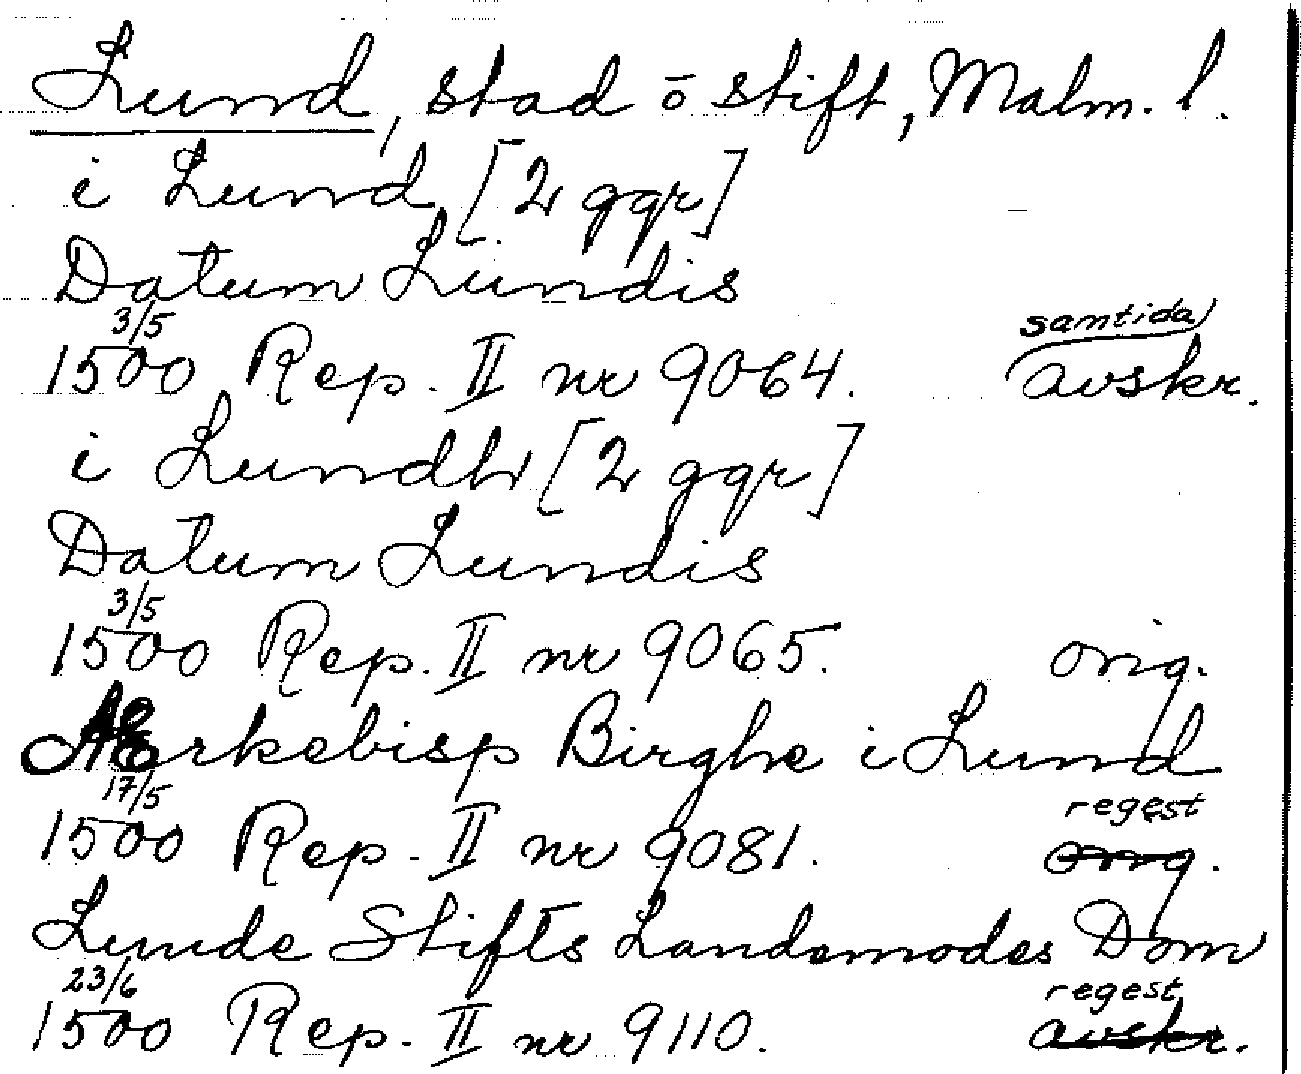 Lund, stad ō stift, Malm. l.
i Lund [2 ggr]
Datum Lundis
3/5 samtida
1500 Rep. II nr 9064. avskr.
i Lundh [2 ggr]
Datum Lundis
3/5
1500 Rep. II nr 9065. orig.
Ærkebisp Birghe i Lund
17/5 regest
1500 Rep. II nr 9081. orig.
Lunde Stifts Landemodes Dom
23/6 regest
1500 Rep. II nr 9110. avskr.